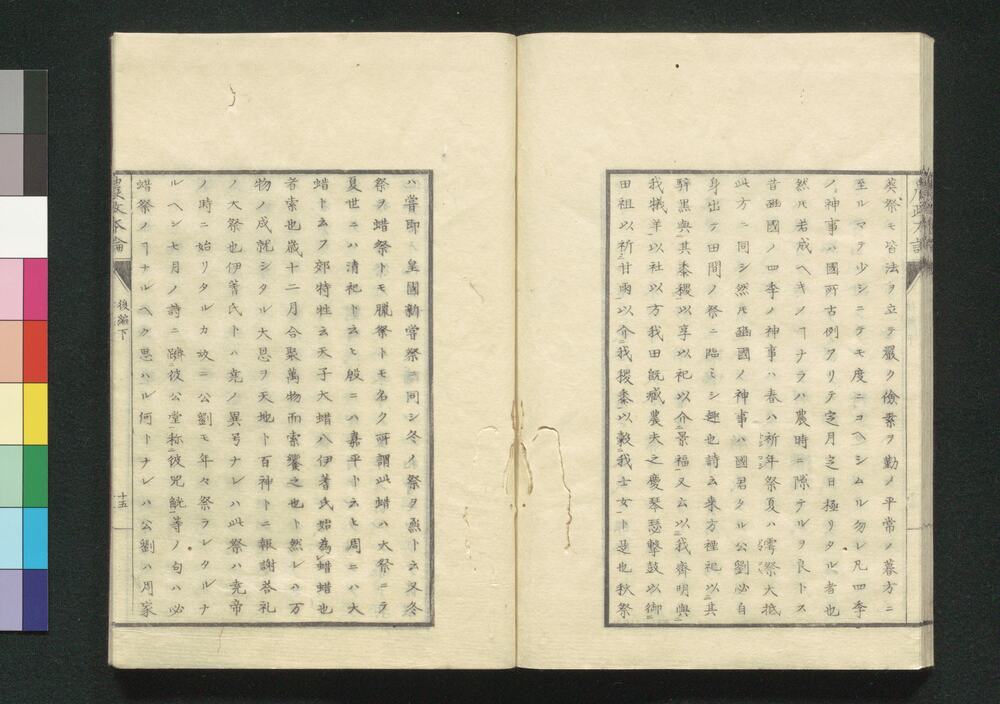 葵祭モ皆法ヲ立テ嚴ク儉素ヲ勤ノ平常ノ暮方ニ
至ルマテ少シニテモ度ニコヘシムル勿レ凡四季
ノ神事ハ國所古例アリテ定月定日極リタル者也
然𪜈若成ヘキノヿナラハ農時ニ隙テルヲ良トス
昔豳國ノ四季ノ神事ハ春ハ祈年祭夏ハ雩祭大抵
此方ニ同シ然𪜈豳國ノ神事ハ國君タル公劉必自
身出テ田間ノ祭ニ臨ミシ趣也詩云来方禋祀以其
騂黑與其黍稷以享以祀以介景福又云以我齊明與
我犠羊以社以方我田既臧農夫之慶琴瑟擊鼓以御
田祖以祈甘雨以介我稷黍以穀我士女ト是也秋祭
ハ嘗即
皇國新嘗祭ニ同シ冬ノ祭ヲ烝ト云又冬
祭ヲ蜡祭トモ臘祭トモ名ク所謂此蜡ハ大祭ニテ
夏世ニハ清祀ト云ヒ殷ニハ嘉平ト云ヒ周ニハ大
蜡ト云フ郊特牲云天子大蜡八伊耆氏始為蜡蜡也
者索也歳十二月合聚萬物而索饗之也ト然レハ万
物ノ成就シタル大恩ヲ天地ト百神トニ報謝荅礼
ノ大祭也伊耆氏トハ堯ノ異号ナレハ此祭ハ堯帝
ノ時ニ始リタルカ故ニ公劉モ年々祭ラレタルナ
ルヘシ七月ノ詩ニ躋彼公堂称彼兕觥等ノ句ハ必
蜡祭ノヿナルヘク思ハル何トナレハ公劉ハ周家
農政本論
後編下
十五